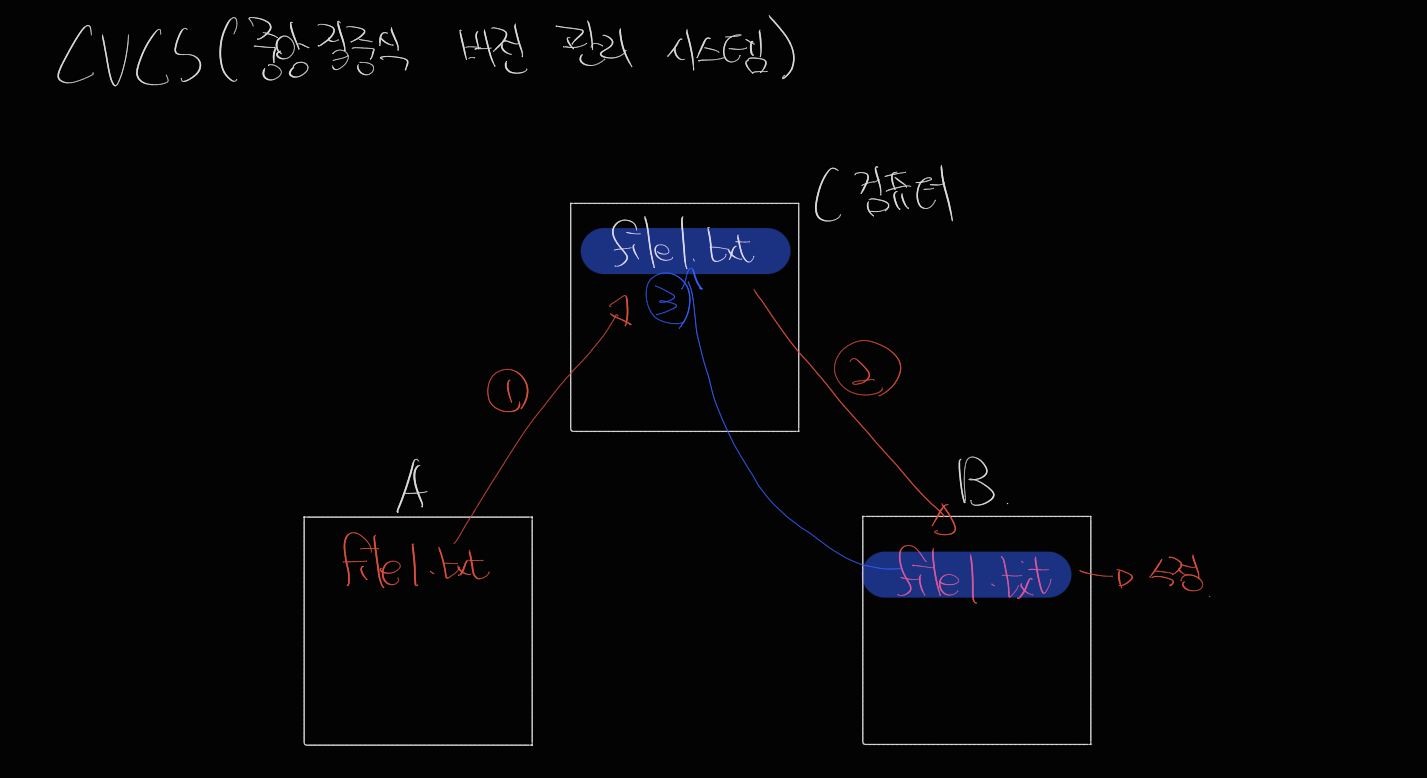 CVCS (중앙집중식 버전 관리 시스템)
C 컴퓨터
file1.txt
③
①
②
A
B.
file1.txt
file1.txt → 수정.